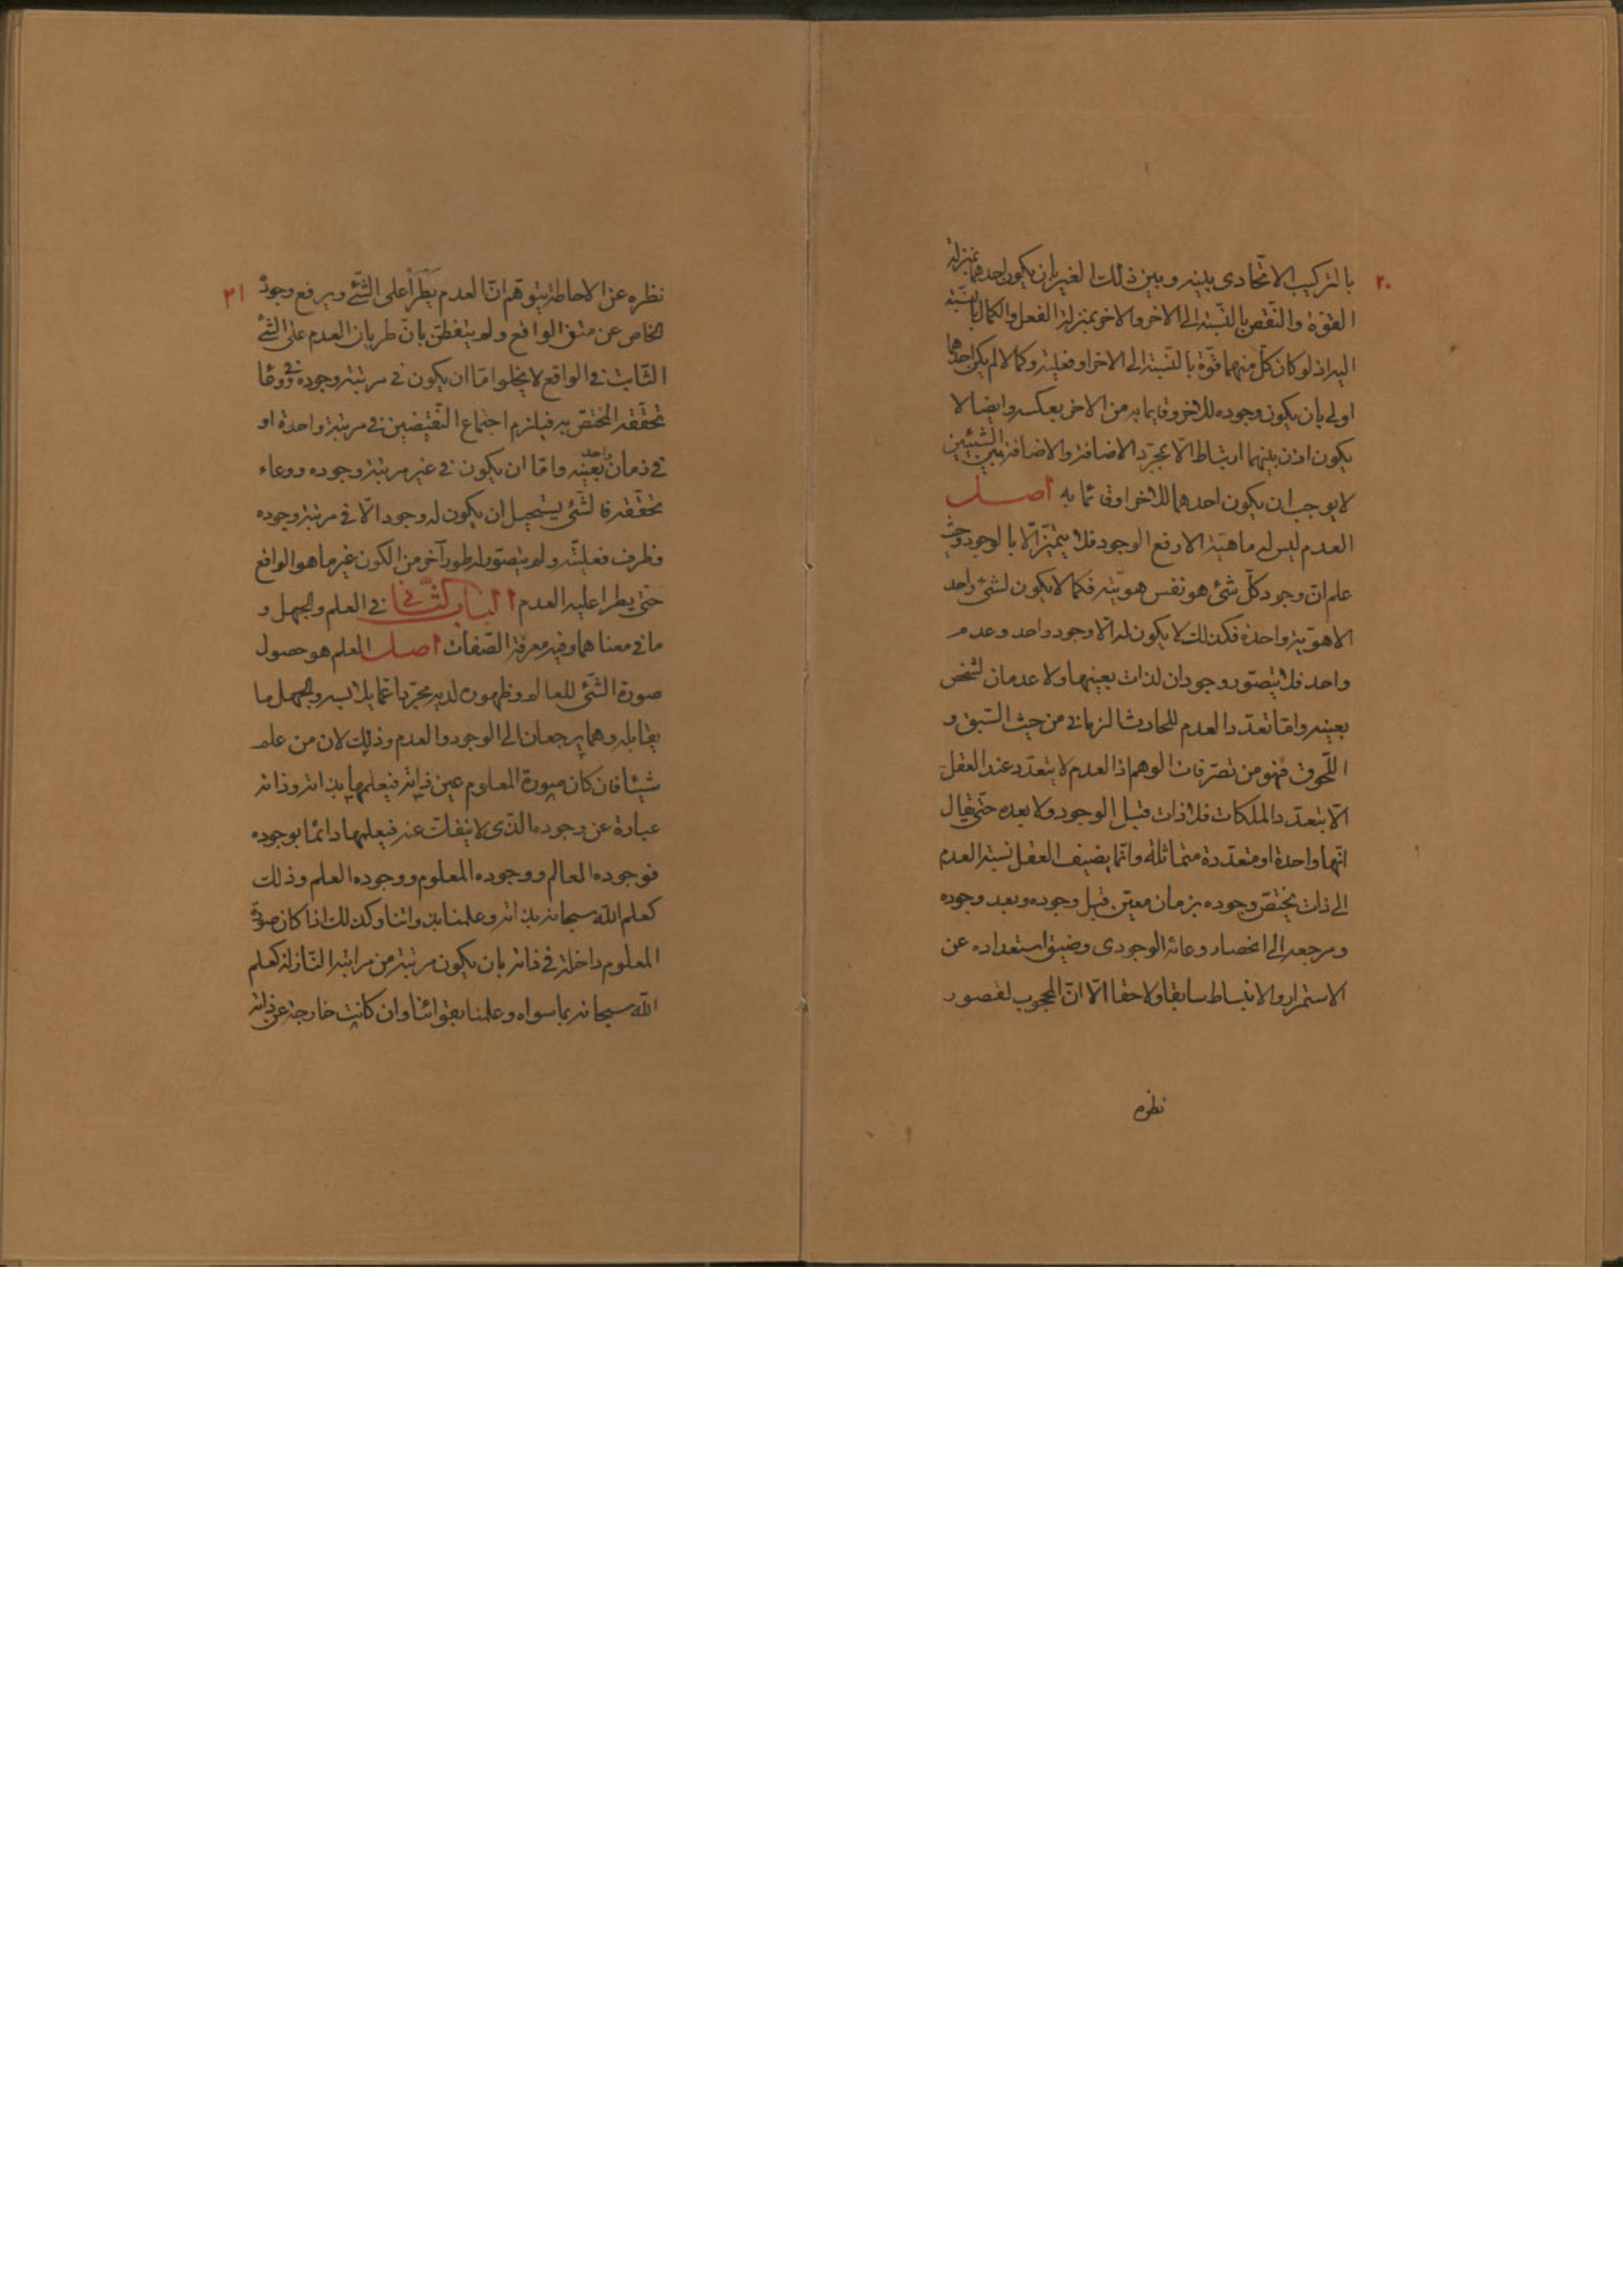 ٢٠
بالتركيب الاتّحادى بينه وبين ذلك الغير بان يكون احدهما بمنزلة
القوّة والنّقص بالنّسبة الى الاخر والاخر بمنزلة الفعل والكمال بالنّسبة
اليه اذ لو كان كلّ منهما قوّة بالنّسبة الى الاخر او فعلية وكمالا لم يكن احدهما
اولى بان يكون وجوده للاخر وقايما به من الاخر بعكسه وايضا لا
يكون اذن بينهما ارتباط الّا بمجرّد الاضافة والاضافة بين الشيئين
لا يوجب ان يكون احدهما للاخر او قائما به اصل
العدم ليس له ماهيّة الا رفع الوجود فلا يتميّز الّا بالوجود وحيث
علم انّ وجود كلّ شئ هو نفس هويّته فكما لا يكون لشئ واحد
الا هويّة واحدة فكذلك لا يكون له الّا وجود واحد وعدم
واحد فلا يتصوّر وجودان لذات بعينها ولا عدمان لشخص
بعينه وامّا تعدّد العدم للحادث الزمانى من حيث السّبق و
اللّحوق فهو من تصرّفات الوهم اذ العدم لا يتعدّد عند العقل
الّا بتعدّد الملكات فلا ذات قبل الوجود ولا بعده حتّى يقال
انّها واحدة او متعدّدة متماثلة وانّما يضيف العقل نسبة العدم
الى ذات يختصّ وجوده بزمان معيّن قبل وجوده وبعد وجوده
ومرجعه الى انحصار وعائه الوجودى وضيق استعداده عن
الاستمرار والانبساط سابقا ولاحقا الّا انّ المحجوب لقصور
نظره
٢١
نظره عن الاحاطة يتوهّم انّ العدم يَطرَأ على الشّئ ويرفع وجوده
الخاص عن متن الواقع ولم يتفطّن بانّ طريان العدم على الشّئ
الثّابت فى الواقع لا يخلوا امّا ان يكون فى مرتبة وجوده وفى وعاء
تحقّقه المختصّ به فيلزم اجتماع النّقيضين فى مرتبة واحدة او
فى زمان واحد بعينه وامّا ان يكون فى غير مرتبة وجوده ووعاء
تحقّقه فالشّئ يستحيل ان يكون له وجود الّا فى مرتبة وجوده
وظرف فعليّته ولم يتصوّر له طور آخر من الكون غير ما هو الواقع
حتّى يطرا عليه العدم الباب الثّانى فى العلم والجهل و
ما فى معناهما وفيه معرفة الصّفات اصل العلم هو حصول
صورة الشّئ للعالم وظهوره لديه مجرّدا عمّا يلابسه والجهل ما
يقابله وهما يرجعان الى الوجود والعدم وذلك لان من علم
شيئا فان كان صورة المعلوم عين ذاته فيعلمها بذاته وذاته
عبارة عن وجوده الّذى لا ينفكّ عنه فيعلمها دائما بوجوده
فوجوده العالم ووجوده المعلوم ووجوده العلم وذلك
كعلم اللّه سبحانه بذاته وعلمنا بذواتنا وكذلك اذا كان صورة
المعلوم داخلة فى ذاته بان يكون مرتبة من مراتبه النّازلة كعلم
اللّه سبحانه بما سواه وعلمنا بقوائنا وان كانت خارجة عن ذاته